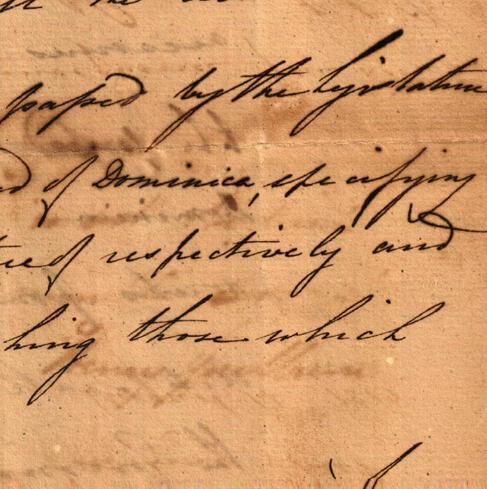 the
passed by the Legislature
d of Dominica, specifying
respectively and
hing those which